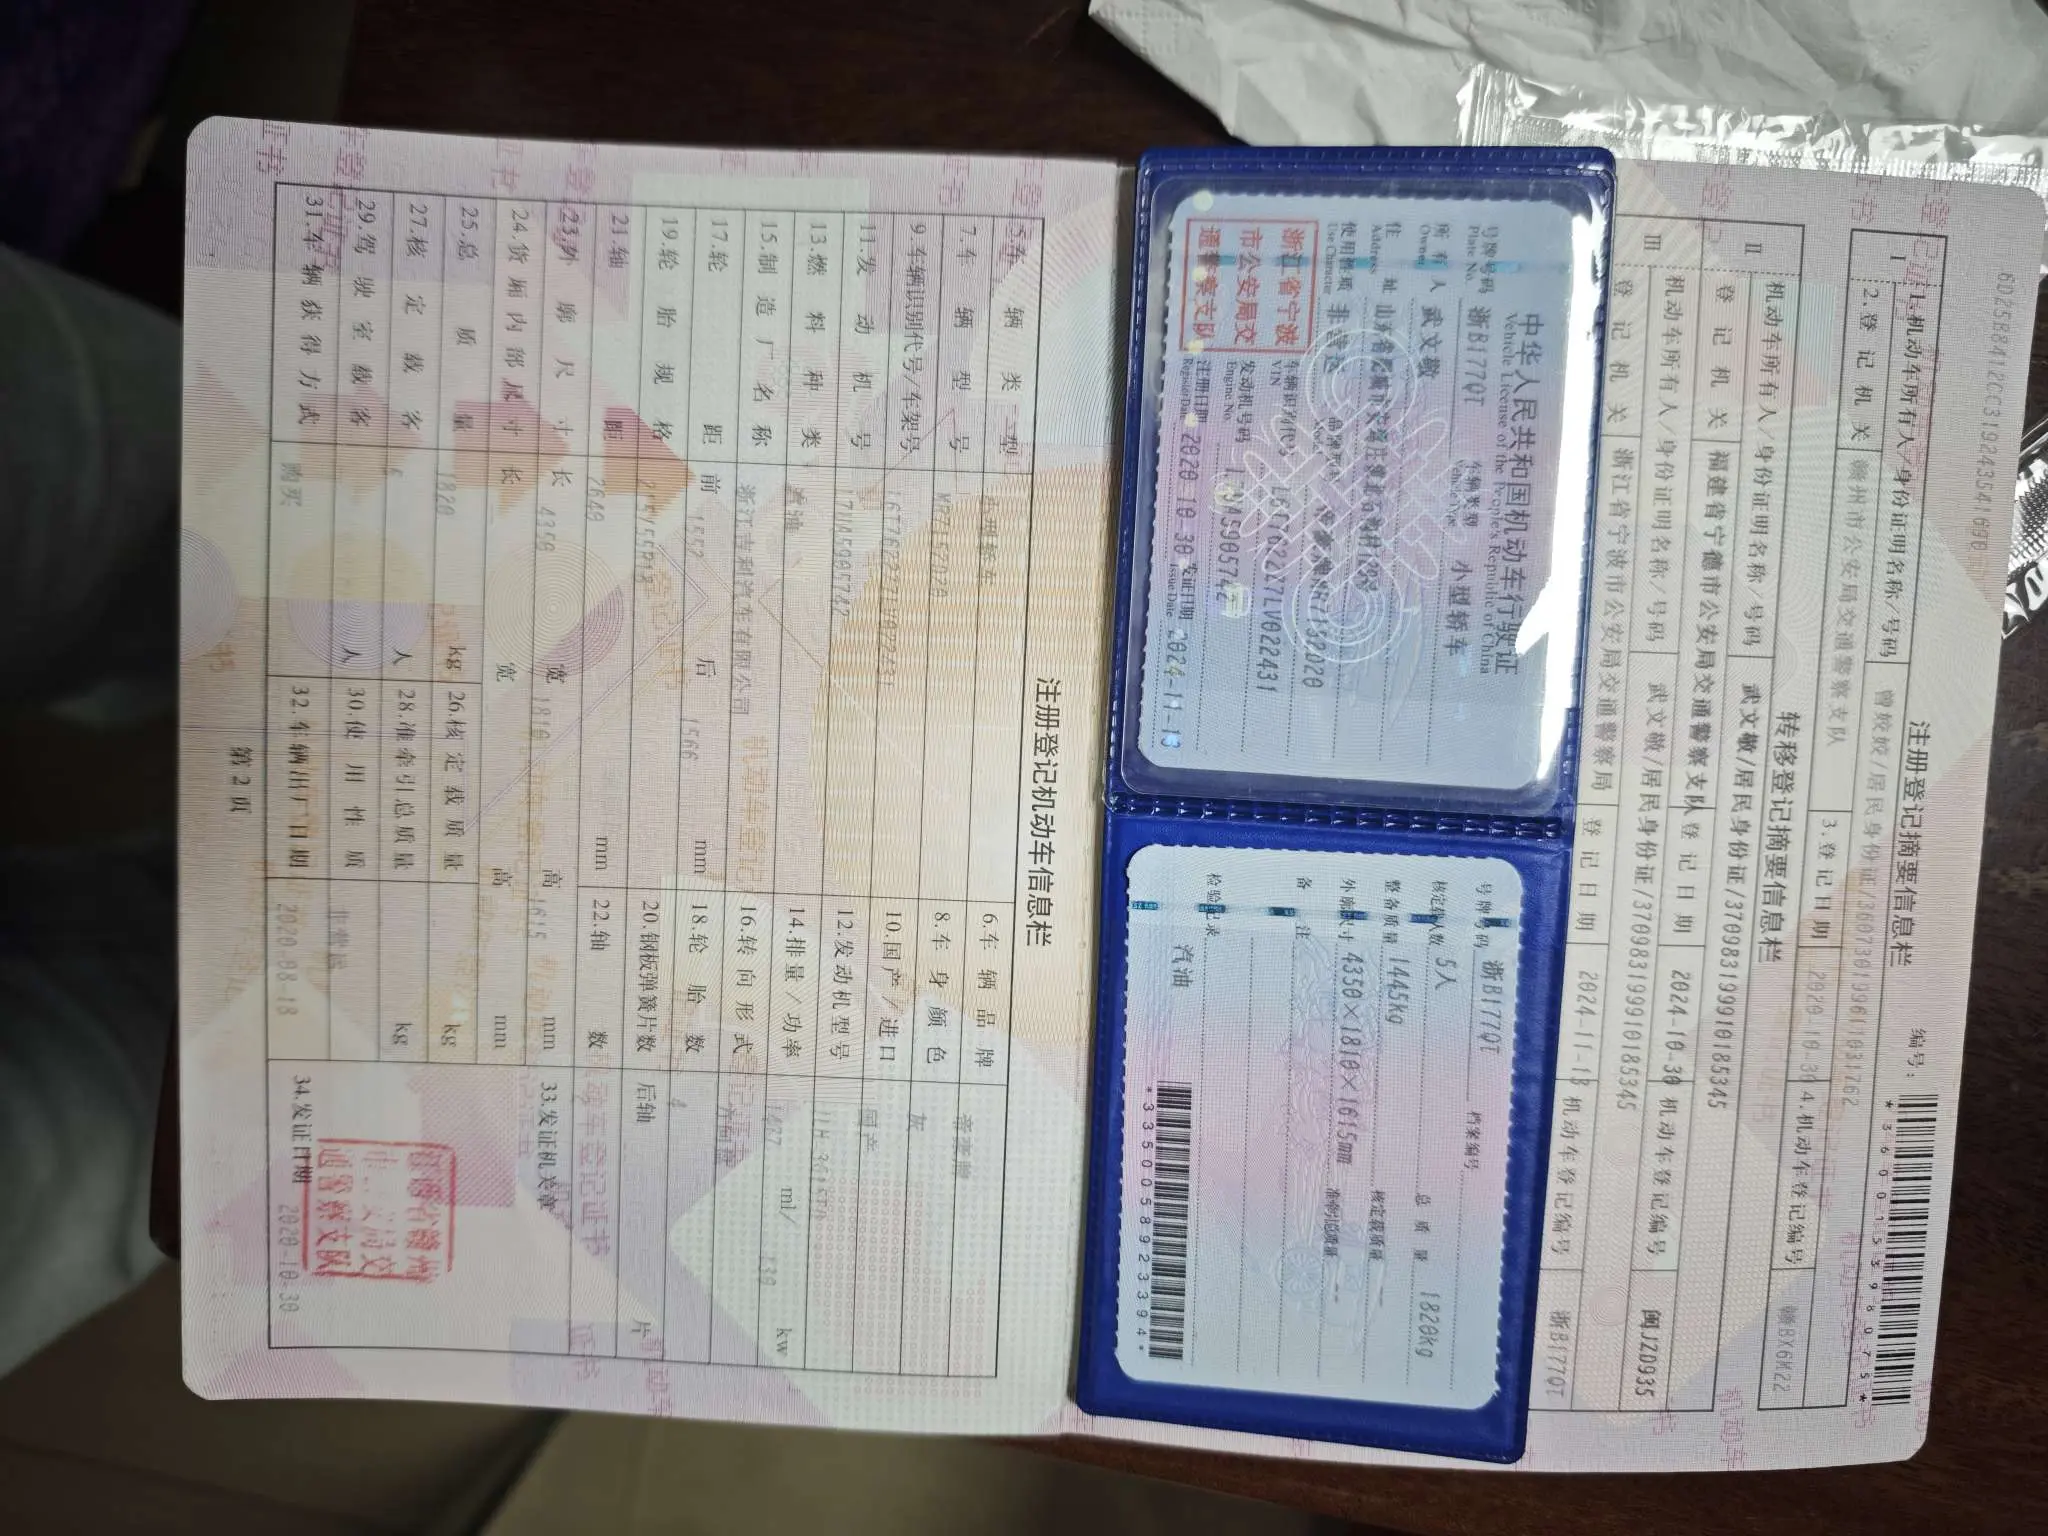 6D25B8412CC319243541690
注册登记摘要信息栏
编号：
*360015398075*
Ⅰ
1.机动车所有人/身份证明名称/号码 曾姣姣/居民身份证/360730199611031762
2.登记机关 赣州市公安局交通警察支队 3.登记日期 2020-10-30 4.机动车登记编号 赣BX6M22
转移登记摘要信息栏
Ⅱ
机动车所有人/身份证明名称/号码 武文敬/居民身份证/370983199910185345
登记机关 福建省宁德市公安局交通警察支队 登记日期 2024-10-30 机动车登记编号 闽JZD935
Ⅲ
机动车所有人/身份证明名称/号码 武文敬/居民身份证/370983199910185345
登记机关 浙江省宁波市公安局交通警察局 登记日期 2024-11-13 机动车登记编号 浙B177QT
中华人民共和国机动车行驶证
Vehicle License of the People's Republic of China
号牌号码 浙B177QT 车辆类型 小型轿车
Plate No. Vehicle Type
所有人 武文敬
Owner
住址
Address
使用性质 非营运 品牌型号
Use Character
浙江省宁波
市公安局交
通警察支队
车辆识别代号
VIN
发动机号码
Engine No.
注册日期 2020-10-30 发证日期 2024-11-13
Register Date Issue Date
号牌号码 浙B177QT 档案编号
核定载人数 5人 总质量 1820kg
整备质量 1445kg 核定载质量 --
外廓尺寸 4350×1810×1615mm 准牵引总质量 --
备注
检验记录
汽油
*3350058923394*
注册登记机动车信息栏
5.车辆类型 小型轿车 6.车辆品牌 帝豪牌
7.车辆型号 MR7152D20 8.车身颜色 灰
9.车辆识别代号/车架号 10.国产/进口 国产
11.发动机号 12.发动机型号
13.燃料种类 汽油 14.排量/功率 1477 ml/ 130 kw
15.制造厂名称 浙江吉利汽车有限公司 16.转向形式 方向盘
17.轮距 前 1552 后 1566 mm 18.轮胎数 4
19.轮胎规格 20.钢板弹簧片数 后轴 片
21.轴距 2640 mm 22.轴数
23.外廓尺寸 长 4350 宽 1810 高 1615 mm 33.发证机关章
24.货厢内部尺寸 长 宽 高 mm
25.总质量 1820 kg 26.核定载质量 kg
27.核定载客 人 28.准牵引总质量 kg
29.驾驶室载客 人 30.使用性质 非营运
31.车辆获得方式 购买 32.车辆出厂日期 2020-08-18 34.发证日期 2020-10-30
第2页